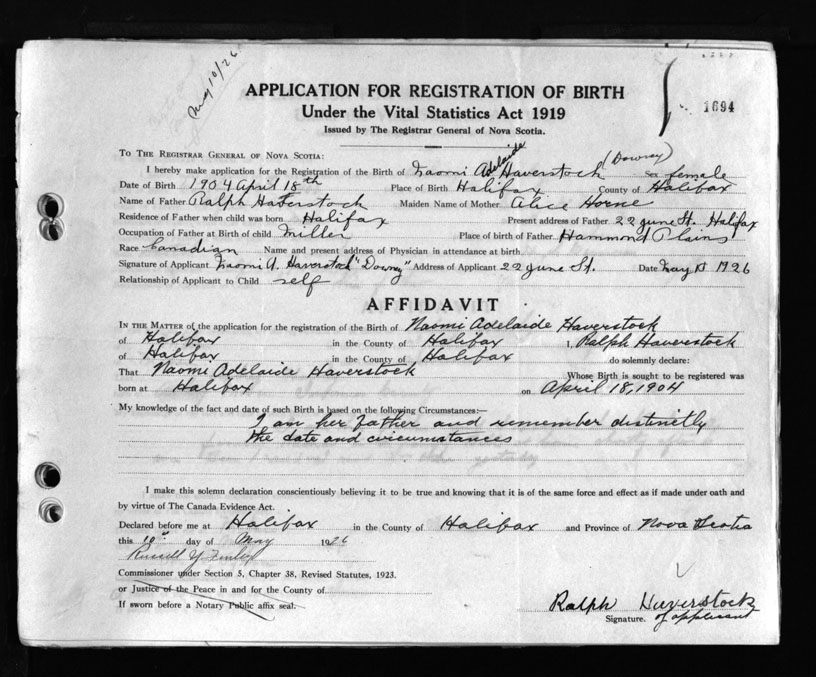 May 10/26
APPLICATION FOR REGISTRATION OF BIRTH
Under the Vital Statistics Act 1919
Issued by The Registrar General of Nova Scotia.
1694
TO THE REGISTRAR GENERAL OF NOVA SCOTIA:
I hereby make application for the Registration of the Birth of Naomi Adelaide Haverstock (Downey) Sex female
Date of Birth 1904 April 18th Place of Birth Halifax County of Halifax
Name of Father Ralph Haverstock Maiden Name of Mother Alice Horne
Residence of Father when child was born Halifax Present address of Father 22 June St. Halifax
Occupation of Father at Birth of child Miller Place of birth of Father Hammond Plains
Race Canadian Name and present address of Physician in attendance at birth
Signature of Applicant Naomi A. Haverstock "Downey" Address of Applicant 22 June St. Date May 1926
Relationship of Applicant to Child self
AFFIDAVIT
IN THE MATTER of the application for the registration of the Birth of Naomi Adelaide Haverstock
of Halifax in the County of Halifax I, Ralph Haverstock
of Halifax in the County of Halifax do solemnly declare:
That Naomi Adelaide Haverstock Whose Birth is sought to be registered was
born at Halifax on April 18, 1904
My knowledge of the fact and date of such Birth is based on the following Circumstances:—
I am her father and remember distinctly
the date and circumstances
I make this solemn declaration conscientiously believing it to be true and knowing that it is of the same force and effect as if made under oath and
by virtue of The Canada Evidence Act.
Declared before me at Halifax in the County of Halifax and Province of Nova Scotia
this 10th day of May 1926
Russell Y.
Commissioner under Section 5, Chapter 38, Revised Statutes, 1923.
or Justice of the Peace in and for the County of
If sworn before a Notary Public affix seal.
Ralph Haverstock
Signature. of applicant